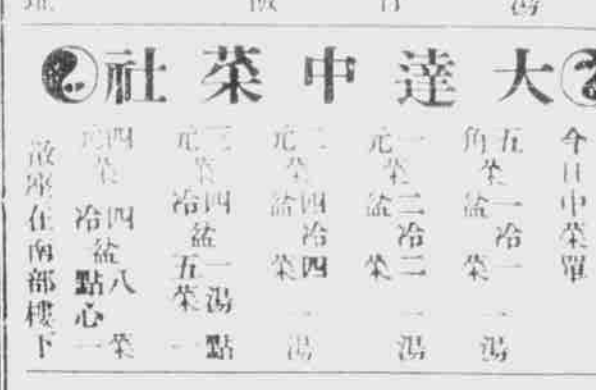 大達中菜社
今日中菜單
五角菜 一冷盆 一菜 一湯
一元菜 二冷盆 二菜 一湯
二元菜 四冷盆 四菜 一湯
三元菜 四冷盆 一湯五菜 一點
四元菜 四冷盆 八菜點心一
散座在南部樓下